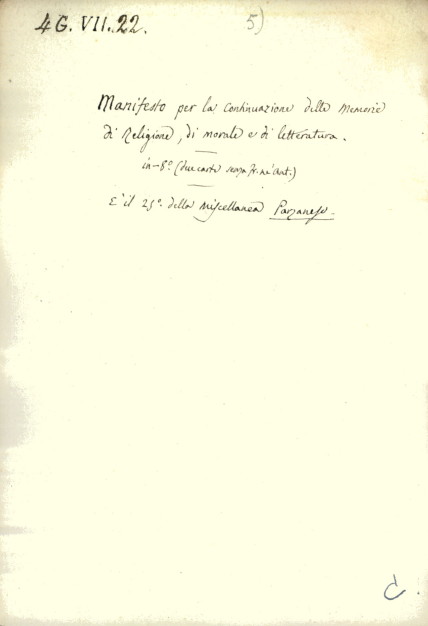 4 G. VII. 22.
5)
Manifesto per la continuazione delle Memorie
di Religione, di morale e di letteratura.
in-8º (due carte senza fr. nè ant.)
E' il 25º. della Miscellanea